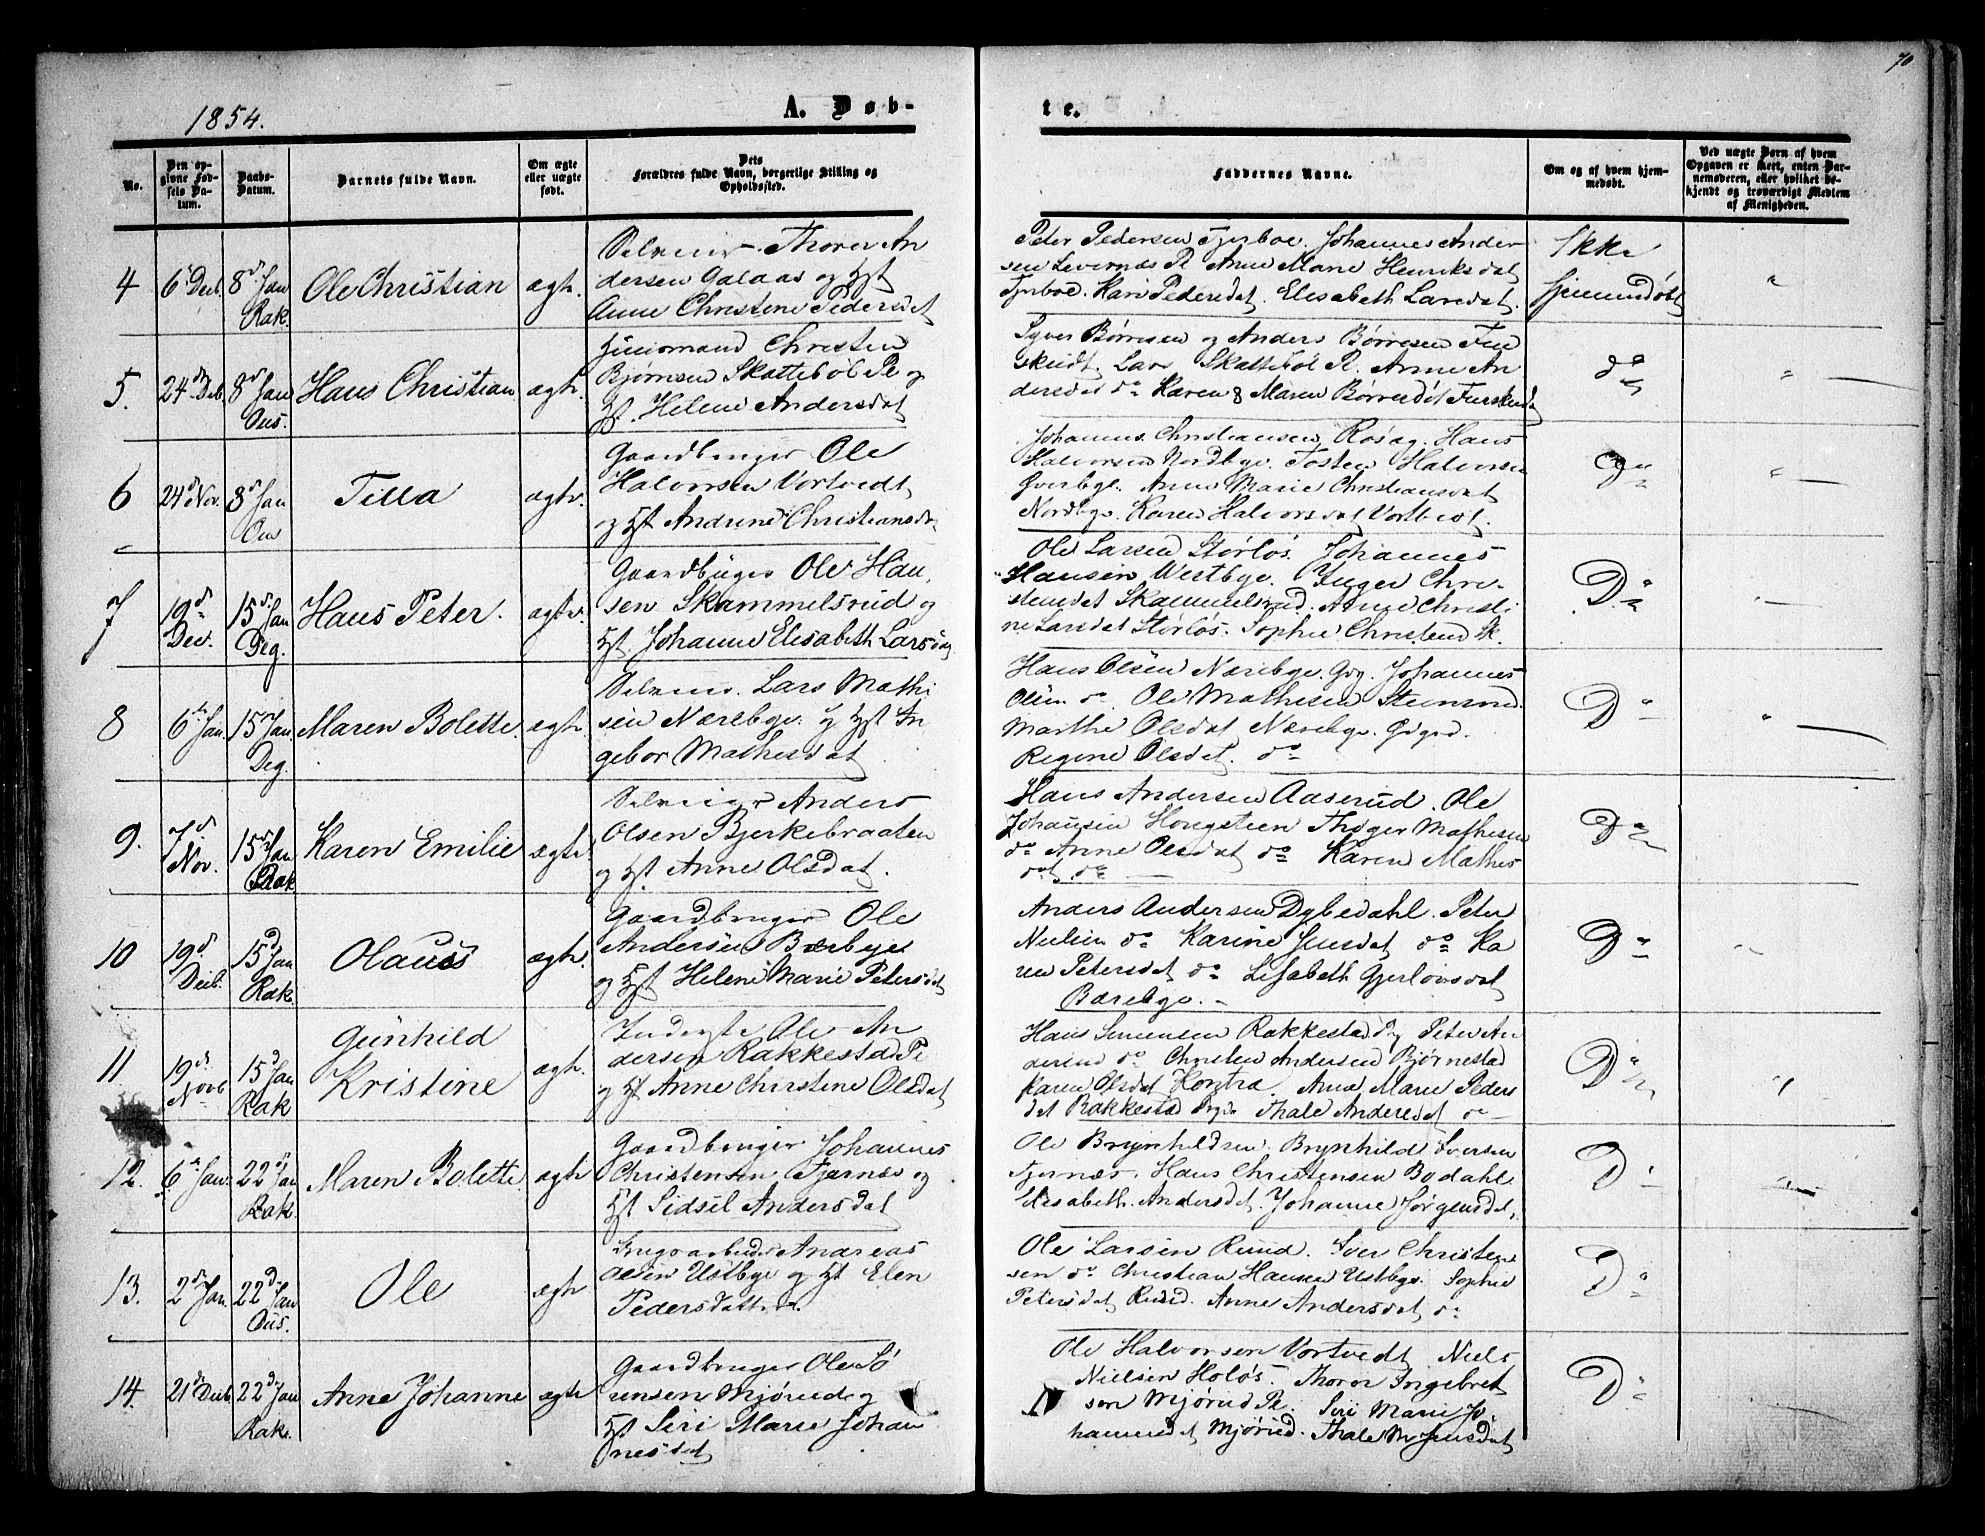 70
1854.
A. Døb-
te.
No.
Den op-
givne Fød-
sels Da-
tum.
Daabs-
Datum.
Barnets fulde Navn.
Om ægte
eller uægte
født.
Dets
Forældres fulde Navn, borgerlige Stilling og
Opholdssted.
Faddernes Navne.
Om og af hvem hjem-
medøbt.
Ved uægte Børn af hvem
Opgaven er skeet, enten Bar-
nemoderen, eller hvilket be-
kjendt og troværdigt Medlem
af Menigheden.
4
6 Decb.
8 Jan
Rak.
Ole Christian
ægte.
Thorer An
dersen Galaas og
Anne Christine Pedersdat
Peter Pedersen Tjerboe. Johannes Ander-
sen Levernæs Pl. Anne Marie Henriksdat
Tjerboe. Kari Pedersdat. Elisabeth Larsdat.
Ikke
hjemmedøbt
5.
24 Deb.
8 Jan
Ous.
Hans Christian
ægte.
Huusmand Christen
Bjørnsen Skattebøl Pl og
Helene Andersdat
Syver Børresen og Anders Børresen
Lars Skattebøl Pl. Anne An
dersdat do Karen & Maren Børresdat
do
6
24 Nov.
8 Jan
Ous
Tilla
ægte.
Gaardbruger Ole
Halvorsen Vortvedt
og Andrine Christiansda.
Johannes Christiansen, Hans
Halvorsen Nordbye. Tosten Halvorsen
Anne Marie Christiansdat
Nordbye. Karen Halvorsdat Vortvedt.
Do
7
19 d
Dec.
15 Jan
Deg.
Hans Peter.
ægte.
Gaardbruger Ole Han
sen Skammelsrud og
Johanne Elisabeth Larsdag
Ole Larsen Størløs. Johannes
Hansen Westbye. Inger Chri-
stensdat Skammelsrud. Anne Christi
ne Larsdat Størløs. Sophie Christens Sk.
Do
8
6 Jan.
15 Jan.
Deg.
Maren Bolette.
ægte.
Lars Mathi
sen Nærebye. og In
gebor Mathesdat
Hans Olsen Nærebye. Johannes
Olsen do. Ole Mathesen
Marthe Olsdat Nærebye.
Regine Olsdat. do
Do
9.
7. d
Nov.
15 Jan
Rak
Karen Emilie
ægte.
Anders
Olsen Bjerkebraaten
og Anne Olsdat.
Hans Andersen Aaserud. Ole
Johansen Hougsteen Thøger Mathesen
do Anne Olsdat do Karen Mathes
dat do
Do
10
19 d
Decb.
15 Jan
Rak.
Olaus
ægte.
Gaardbruger Ole
Andersen Bærbye
og Helene Marie Petersdat
Anders Andersen Dybedahl. Peter
Nielsen do Karine Jensdat do Ka
ren Petersdat do Lisabeth Gjerlovsdat
Bærebye.
Do
11
19 d
Novb
15 Jan
Rak
Gunhild
Kristine
ægte.
Inderste Ole An
dersen Rakkestad Pl
og Anne Christine Olsdat
Hans Simensen Rakkestad Peter An
dersen do Christen Andersen Bjørnestad
Karen Olsdat Anne Marie Peders
dat Rakkestad Thale Andersdat do
Do
12.
6 Jan.
22 Jan
Rak.
Maren Bolette.
ægte
Gaardbruger Johannes
Christensen Tjernæs og
Sidsel Andersdat
Ole Brynhildsen. Brynhild Iversen
Tjernæs. Hans Christensen Bodahl.
Elisabeth Andersdat. Johanne Jørgensdat.
D
13.
2 Jan.
22 Jan
Ous.
Ole
ægte
Andreas
Olsen Ustbye og Elen
Pedersdatter.
Ole Larsen Ruud. Iver Christen
sen do Christian Hansen Ustbye. Sophie
Petersdat Ruud. Anne Andersdat do
Do
14.
21 Decb.
22 Jan
Rak.
Anne Johanne
ægte
Gaardbruger Ole Sø
rensen Mjørud og
Siri Marie Johan
nesdat
Ole Halvorsen Vortvedt Niels
Nielsen Holøs. Thoror Ingebret
sen Mjørud Pl. Siri Marie Jo
hannesdat Mjørud. Thale M. Jensdat
Do